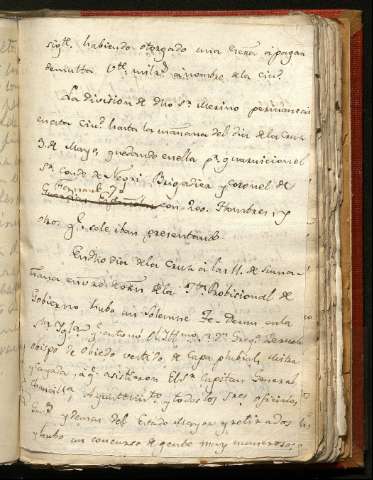 sigte. habiendo otorgado una Escra. á pagar
demulta Oto. mil rs. á nombre dela ciud.
La division de dho Sr. Merino permanecio
enesta Ciud. hasta la mañana del dia dela Cruz
3. de Mayo, quedando enella pr. guarnicion el
Sr. Conde de Brigadier y Coronel de
con 200. Hombres, y
otros q. sele iban presentando
Endho dia dela Cruz á las 11. de sumañana
en virtud orn. de la Jta. Probicional de
Gobierno hubo un solemne Te Deum enla
Sta. Iglesia y entonó el Illmo. Sr. Dn. Grego.
obispo de Obiedo vestido de Capa plubial, mitra
y cayada, á q. asistieron El Sr. Capitan General
Ayuntamiento, y todos los Sres. oficiales
y demas del Estado Mayor y retirados
y hubo un concurso de gente muy numeroso